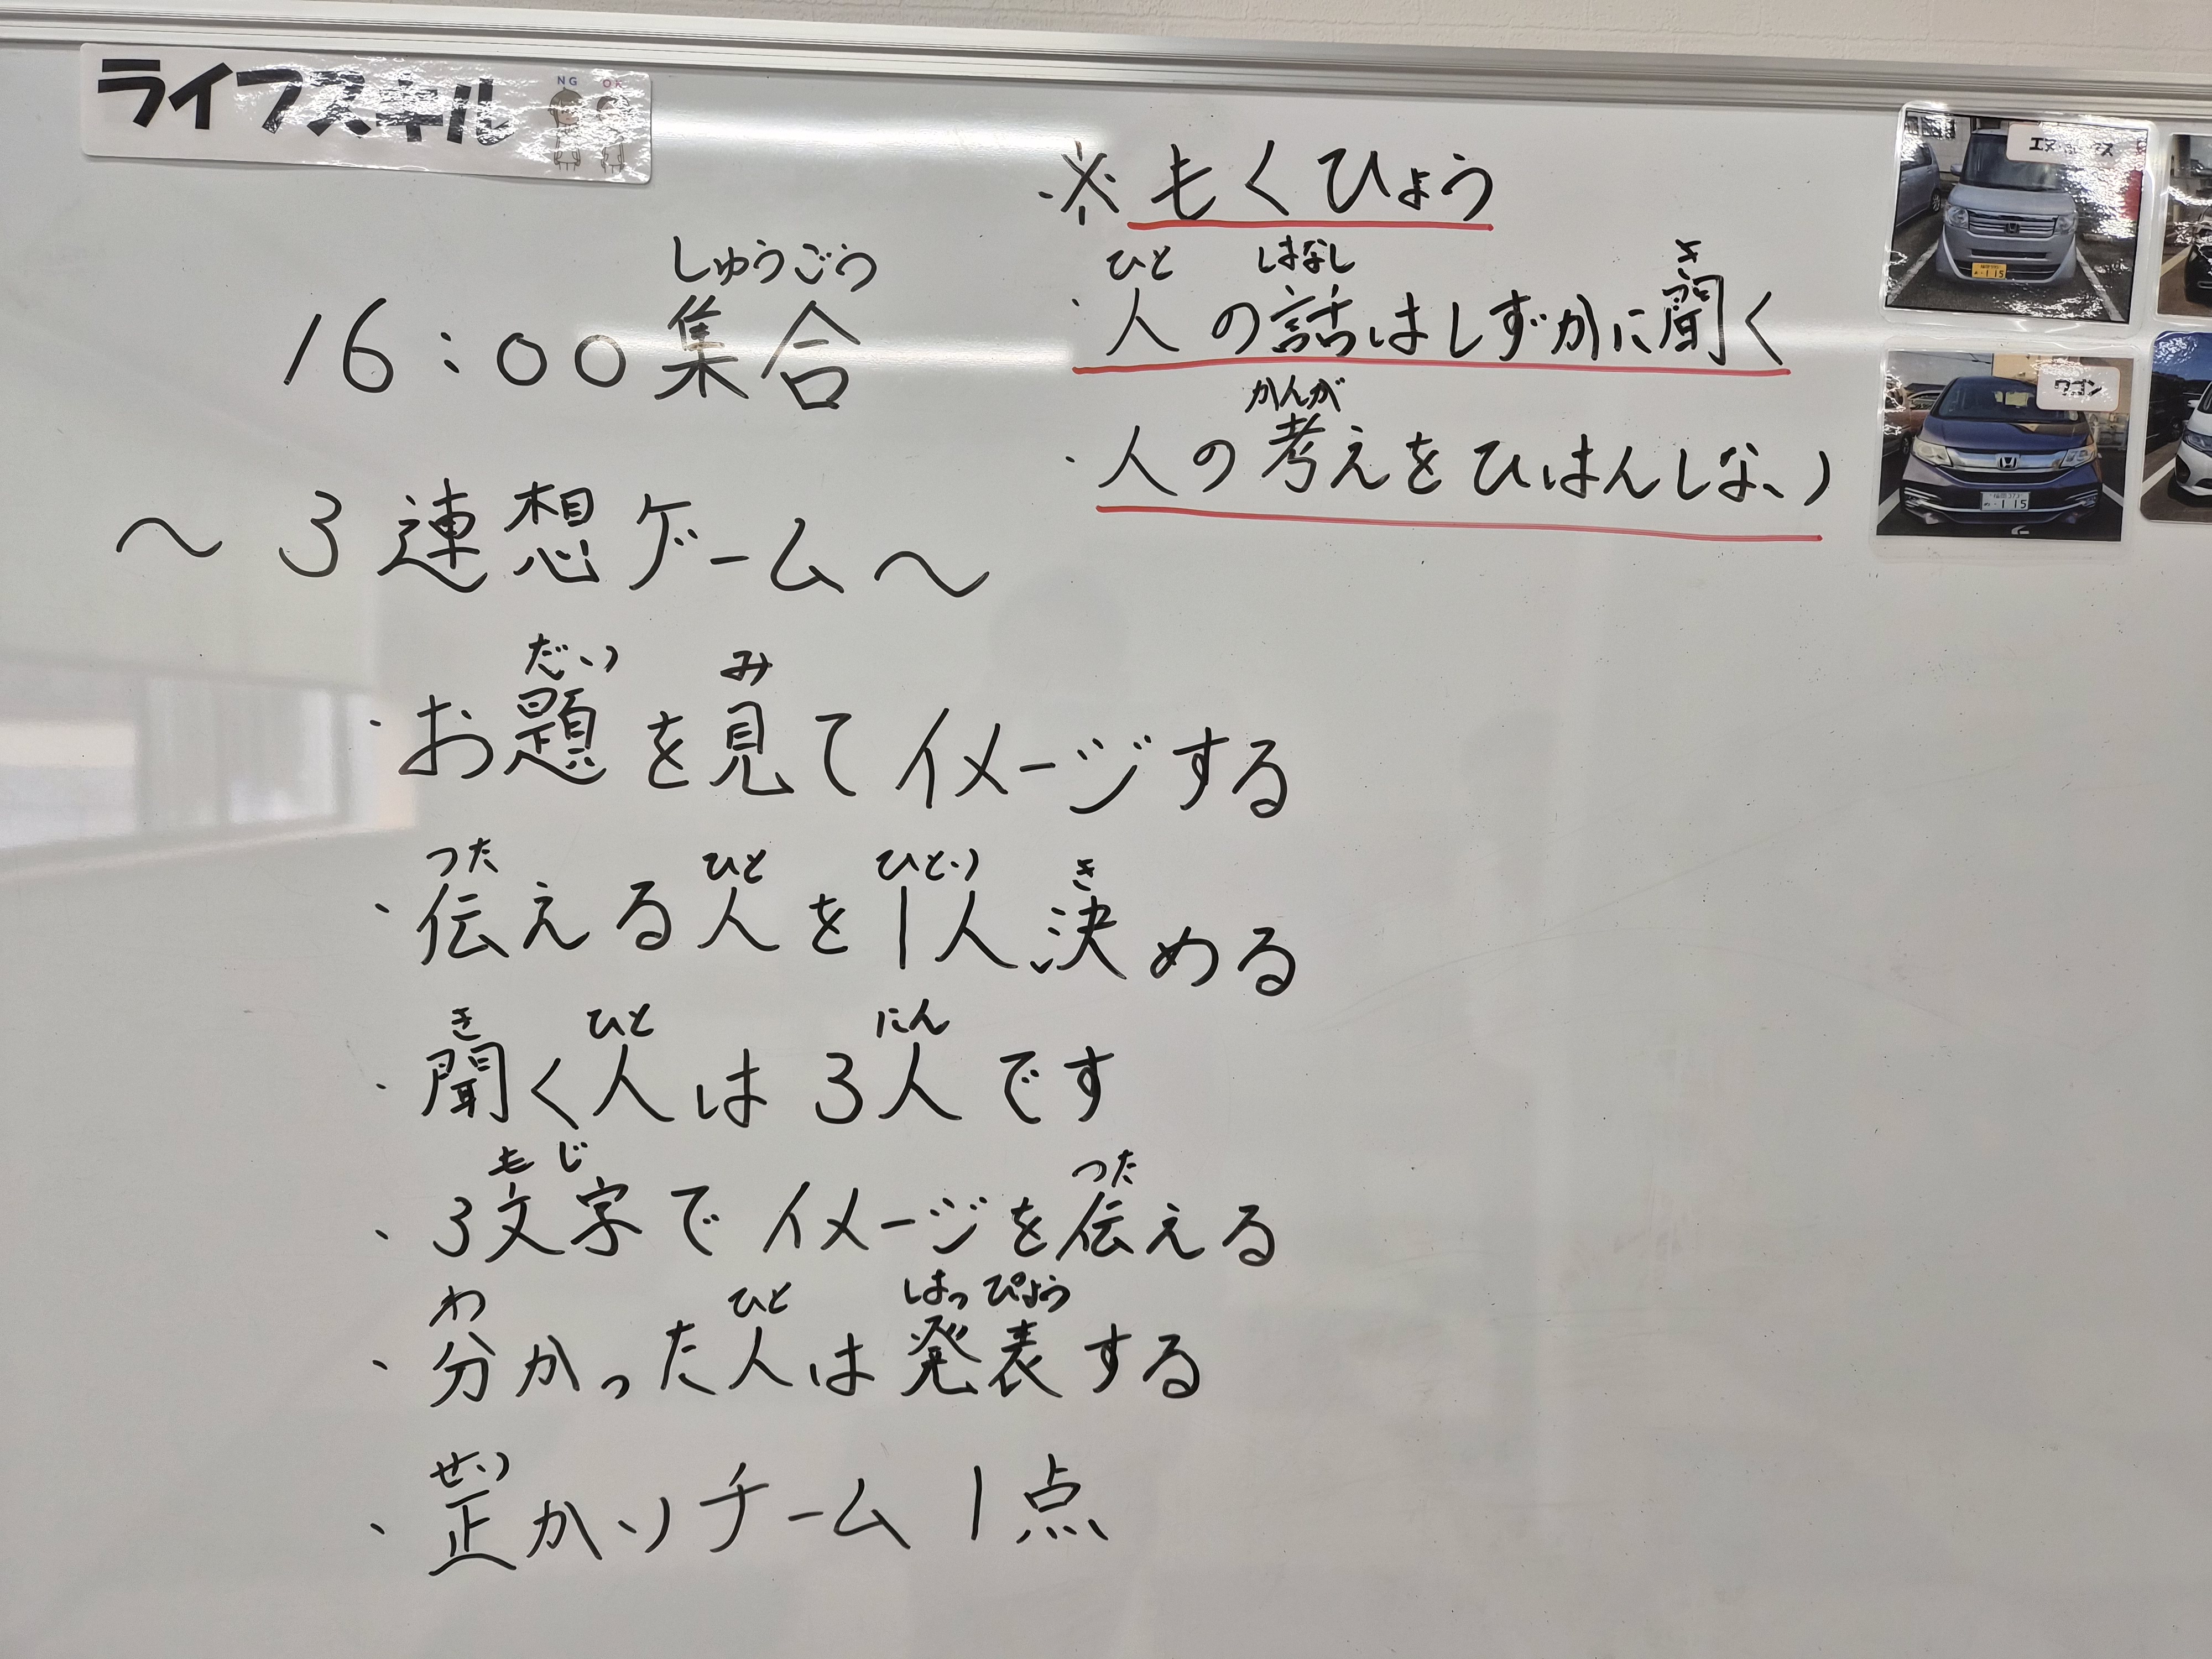 ライフスキル
NG
しゅうごう
16:00集合
～3連想ゲーム～
だい み
・お題を見てイメージする
つた ひと ひとり き
・伝える人を1人決める
き ひと にん
・聞く人は3人です
もじ つた
・3文字でイメージを伝える
わ ひと はっぴょう
・分かった人は発表する
せい
・正かいチーム1点
※もくひょう
ひと はなし き
・人の話はしずかに聞く
かんが
・人の考えをひはんしない
ワゴン
115
115